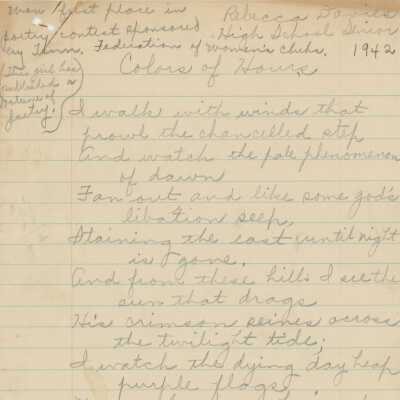 won first place in
poetry contest sponsored
by Tenn. Federation of Women's clubs.
(this girl has
published a
volume of
poetry.)
Rebecca Davies
High School Senior
1942
Colors of Hours
I walk with winds that
prowl the chancelled step
And watch the pale phenomenon
of dawn
Fan out and like some god's
libation seep,
Staining the east until night
is gone.
And from these hills I see the
sun that drags
His crimson seines across
the twilight tide;
I watch the dying day heap
purple flags